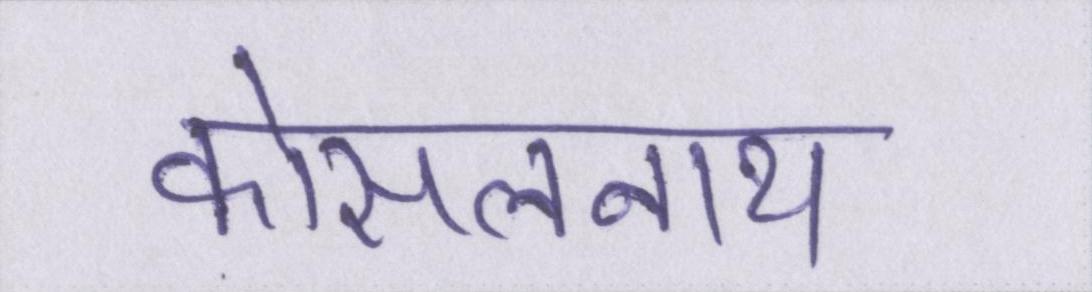 कोसलनाथ